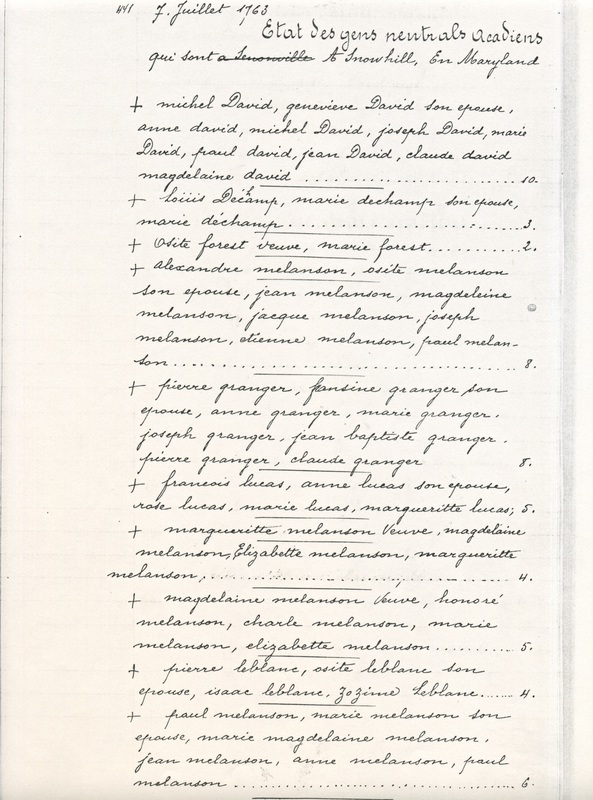 441 7. Juillet 1763
Etat des gens neutrals acadiens
qui sont a Senonville A Snowhill, En Maryland
+ michel David, genevieve David son epouse,
anne david, michel David, joseph David, marie
David, paul david, jean David, claude david
magdelaine david .......... 10.
+ loüis Déchamp, marie dechamp son epouse,
marie déchamp .......... 3.
+ Osite forest veuve, marie forest .......... 2.
+ alexandre melanson, osite melanson
son epouse, jean melanson, magdeleine
melanson, jacque melanson, joseph
melanson, etienne melanson, paul melan-
son .......... 8.
+ pierre granger, fansine granger son
epouse, anne granger, marie granger.
joseph granger, jean baptiste granger.
pierre granger, claude granger 8.
+ francois lucas, anne lucas son epouse,
rose lucas, marie lucas, margueritte lucas; 5.
+ margueritte melanson Veuve, magdelaine
melanson, Elizabette melanson, margueritte
melanson, .......... 4.
+ magdelaine melanson Veuve, honoré
melanson, charle melanson, marie
melanson, elizabette melanson .......... 5.
+ pierre leblanc, osite leblanc son
epouse, isaac leblanc, Zozime Leblanc ....... 4.
+ paul melanson, marie melanson son
epouse, marie magdelaine melanson,
jean melanson, anne melanson, paul
melanson .......... 6.